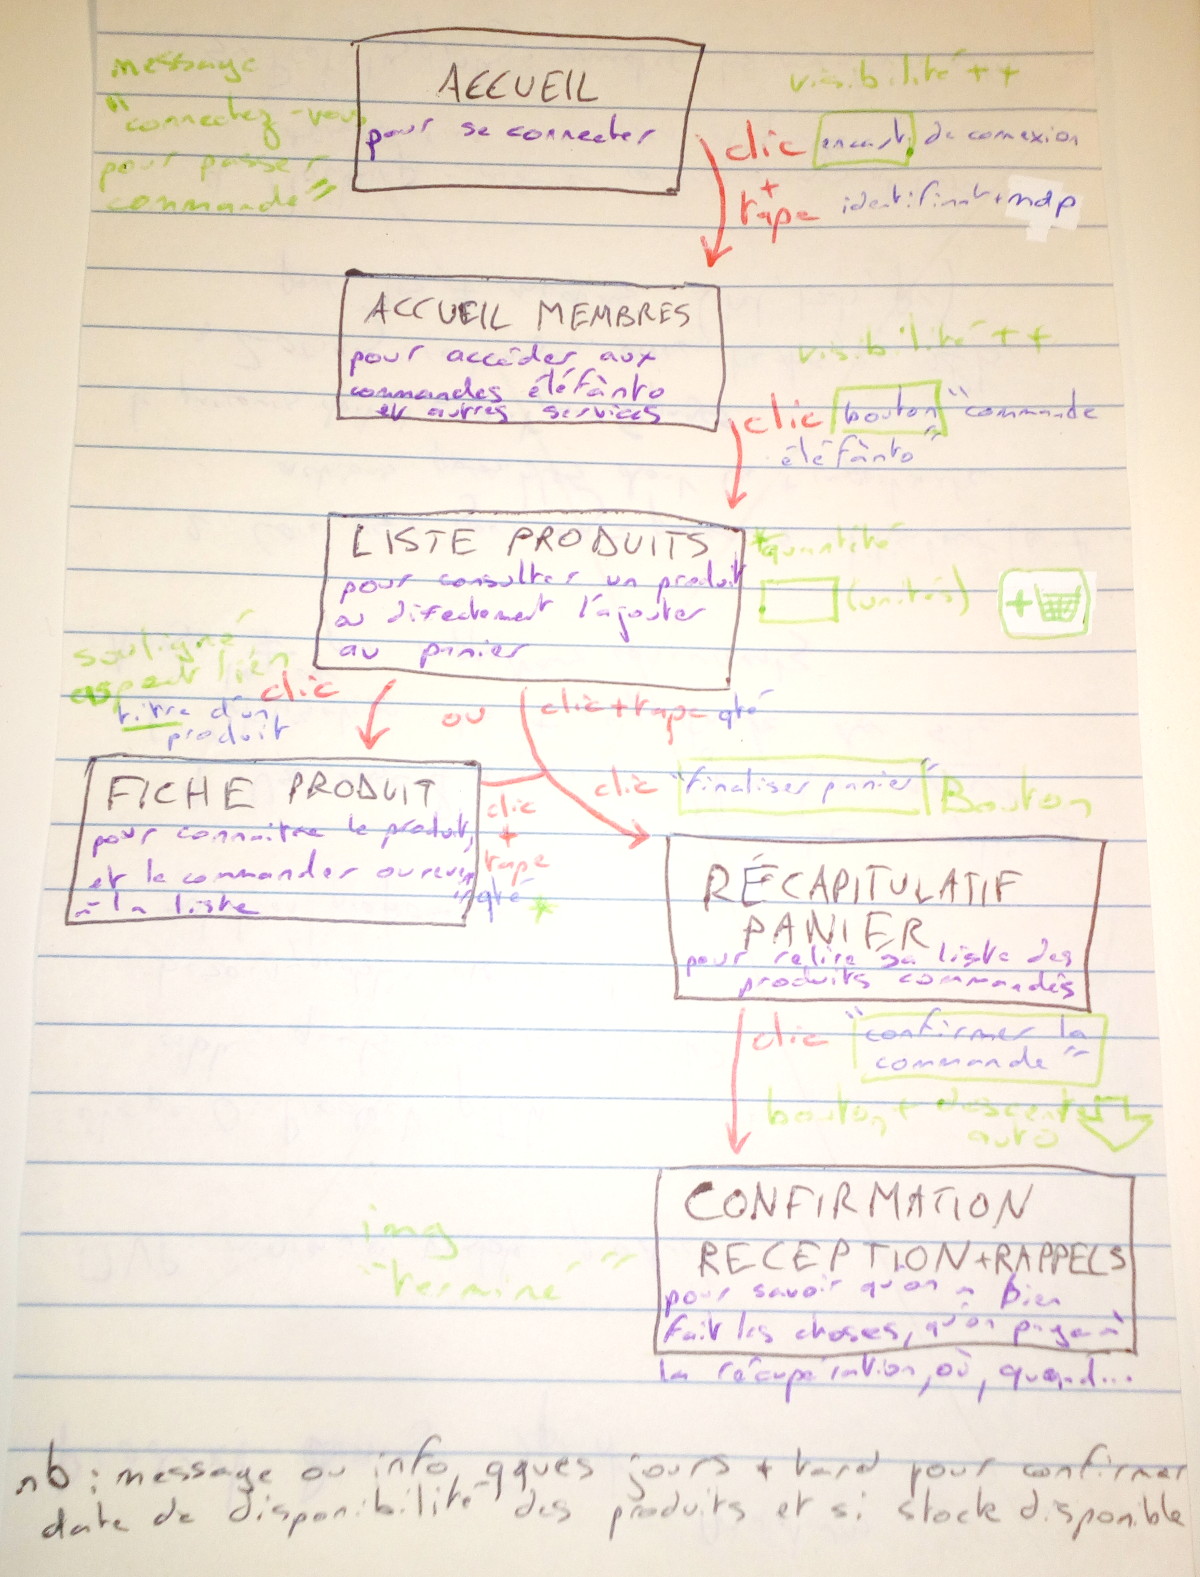 message
"connectez-vous
pour passer
commande"
ACCUEIL
pour se connecter
visibilité ++
clic encart de connexion
+
tape identifiant + mdp
ACCUEIL MEMBRES
pour accéder aux
commandes éléfànto
et autres services
visibilité ++
clic bouton "commande
éléfànto"
LISTE PRODUITS
pour consulter un produit
ou directement l'ajouter
au panier
*quantité
(unités)
+
souligné
aspect lien
clic
titre d'un
produit
ou
clic+tape qté
FICHE PRODUIT
pour connaitre le produit,
et le commander ou revenir
à la liste
clic
+
tape
qté *
clic "finaliser panier" Bouton
RÉCAPITULATIF
PANIER
pour relire sa liste des
produits commandés
clic "confirmer la
commande"
bouton + descente
auto
img
"terminé"
CONFIRMATION
RECEPTION+RAPPELS
pour savoir qu'on a bien
fait les choses, qu'on paye à
la récupération, où, quand...
nb : message ou info qques jours + tard pour confirmer
date de disponibilité des produits et si stock disponible